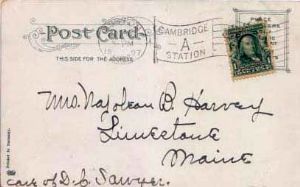 Post Card
CAMBRIDGE
A
STATION
THIS SIDE FOR THE ADDRESS.
Mrs. Napoleon B. Harvey
Limestone
Maine
care of D. C. Sawyer.